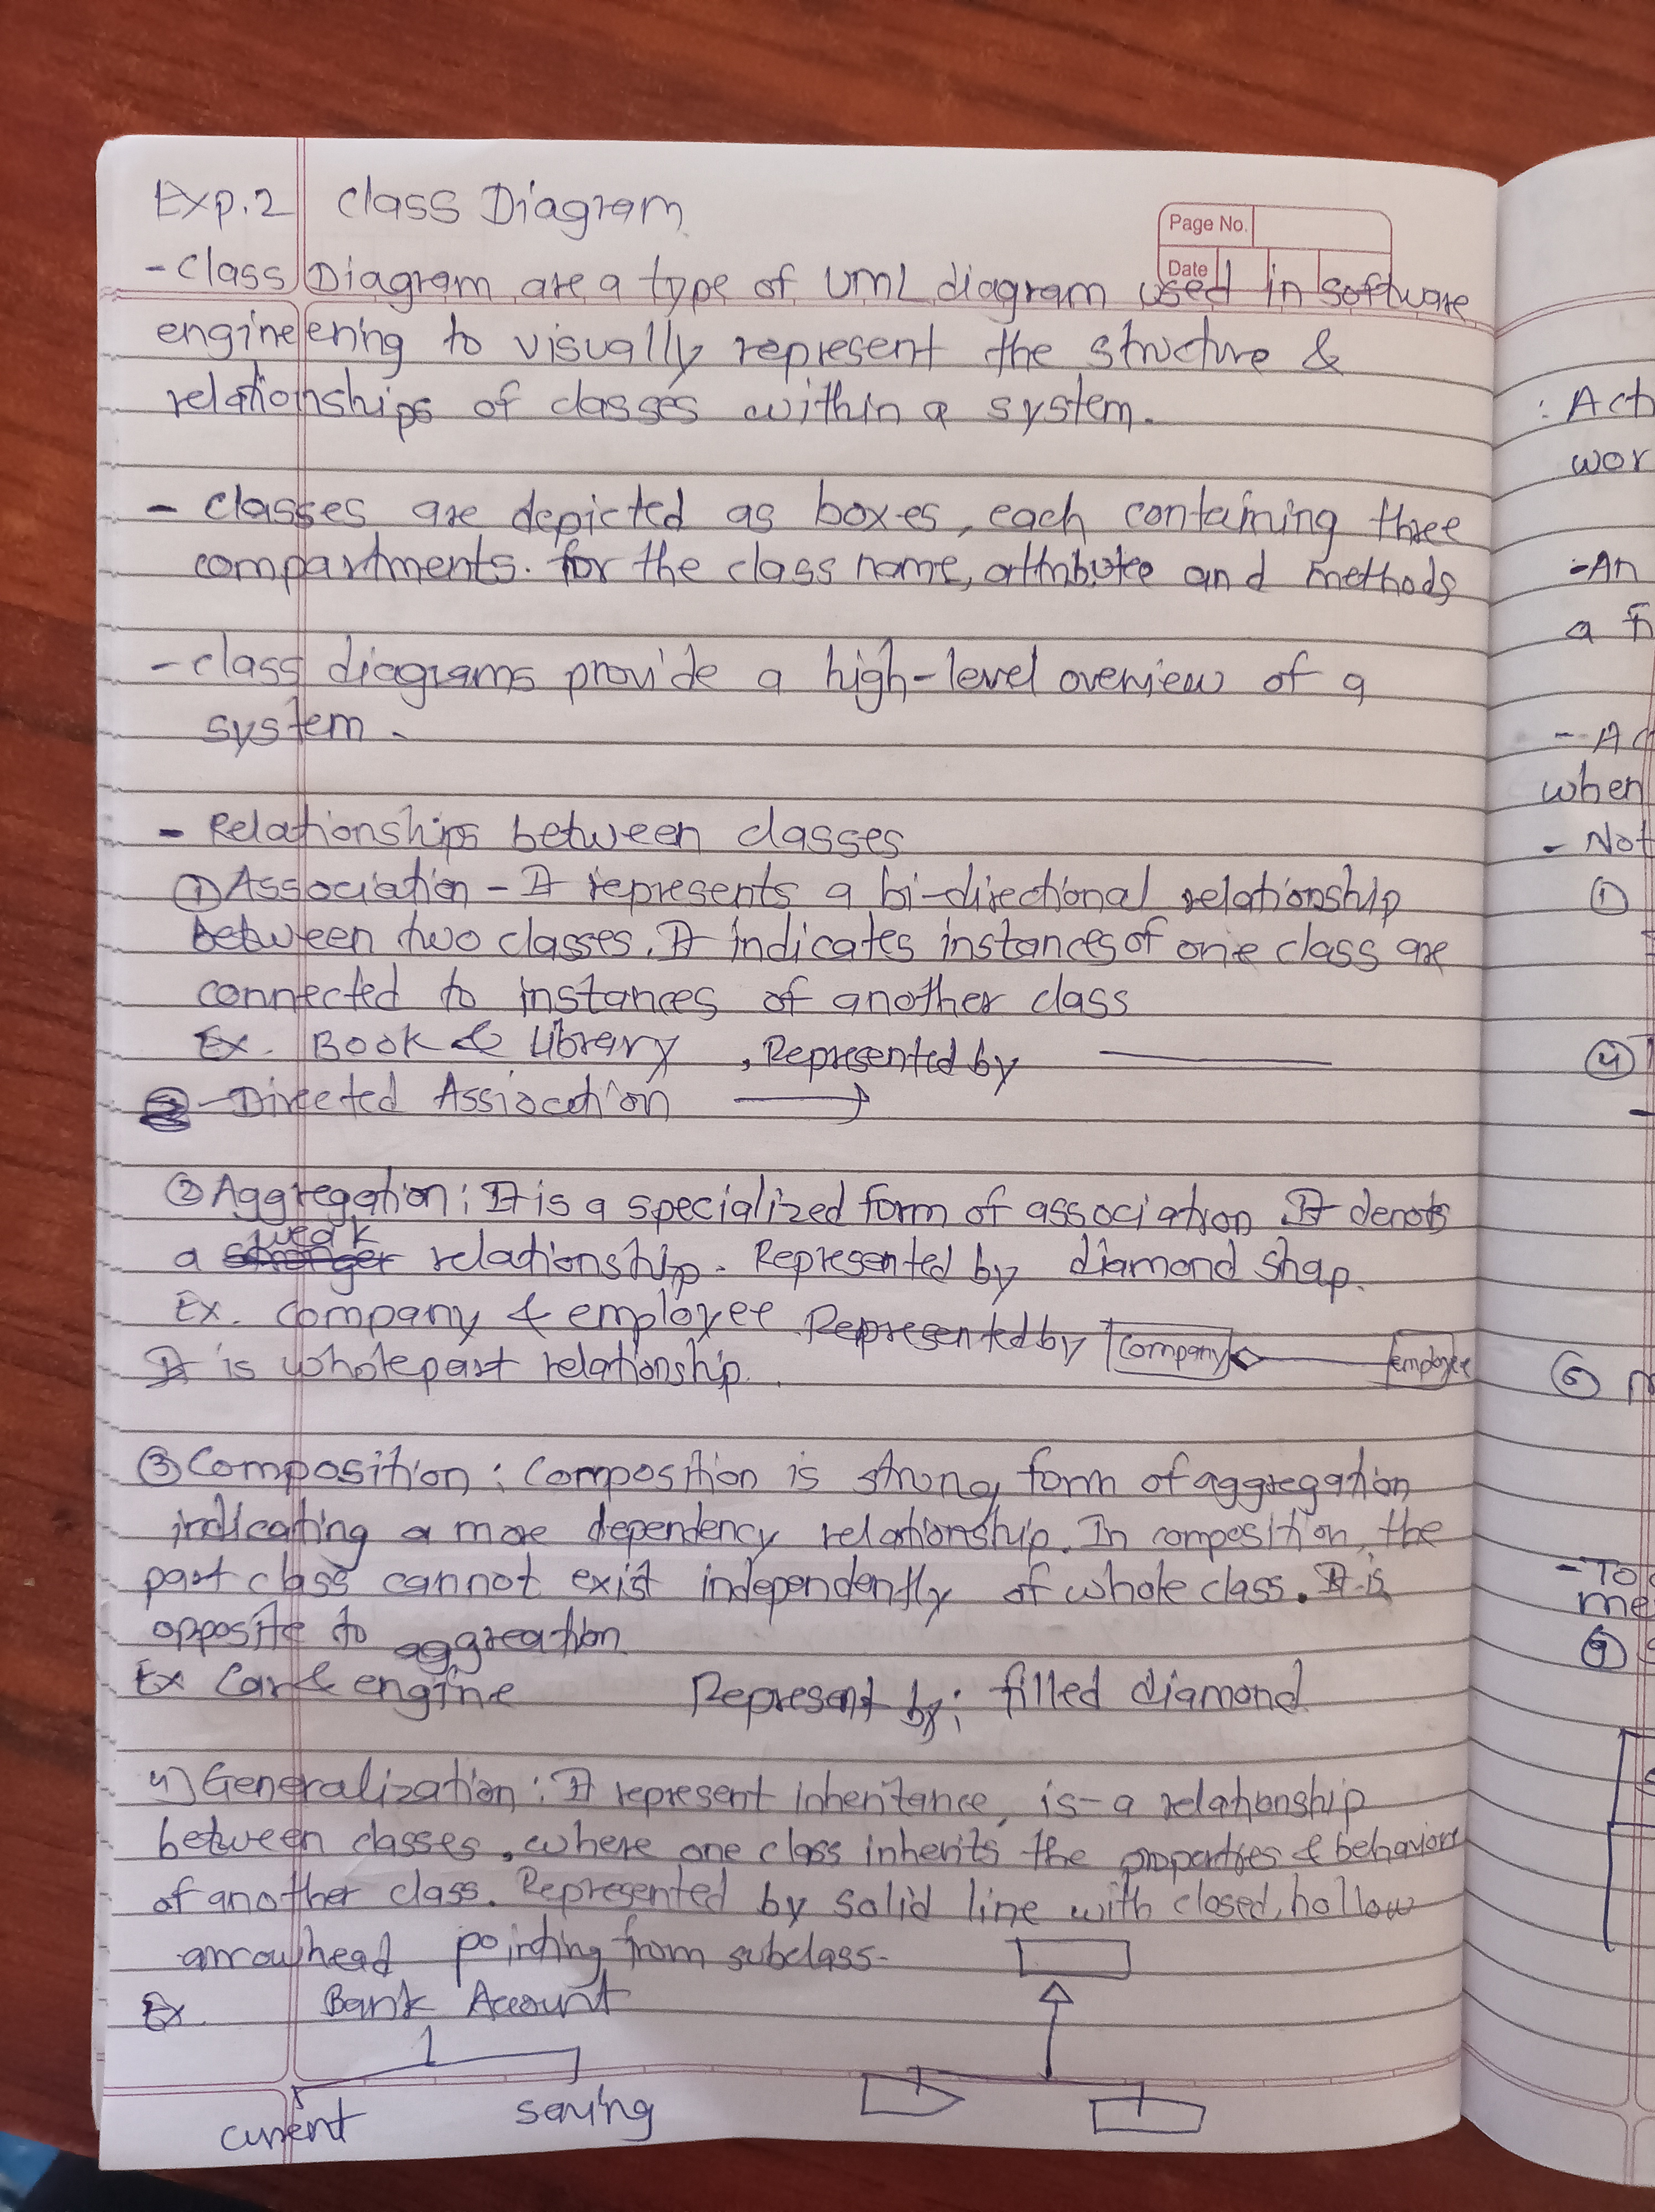 Exp.2 Class Diagram
Page No.
Date
- Class Diagram are a type of UML diagram used in software
engineering to visually represent the structure &
relationships of classes within a system.
- classes are depicted as boxes, each containing three
compartments. for the class name, attributee and methods
- class diagrams provide a high-level overview of a
system.
- Relationships between classes
① Association - It represents a bi-directional relationship
between two classes. It indicates instances of one class are
connected to instances of another class
Ex. Book & Library , Represented by
- Directed Assiocation
② Aggregation : It is a specialized form of association It denots
weak
a stronger relationship. Represented by diamond shap.
Ex. company & employee Represented by Company employee
It is whole part relationship.
③ Composition : Composition is strong form of aggregation
indicating a more dependency relationship. In composition, the
part class cannot exist independently of whole class. It is
opposite to aggreation
Ex Car & engine Represent by: filled diamond
4) Generalization : It represent inheritance, is-a relationship
between classes, where one class inherits the properties & behaviors
of another class. Represented by solid line with closed, hollow
arrowhead pointing from subclass-
Ex. Bank Account
current saving
: Act
wor
-An
a
- Ac
when
- Not
①
④
⑥
-To
me
⑨